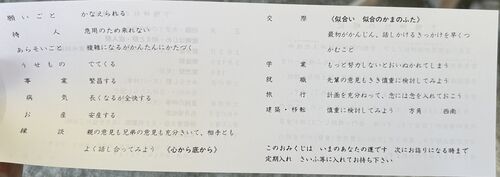 願いごと かなえられる
待人 急用のため来れない
あらそいごと 複雑になるがかんたんにかたづく
うせもの でてくる
事業 繁昌する
病気 長くなるが全快する
お産 安産する
縁談 親の意見も兄弟の意見も充分きいて、相手とも
よく話し合ってみよう 《心から底から》
交際 《似合い 似合のかまのふた》
最初がかんじん、話しかけるきっかけを早くつ
かむこと
学業 もっと努力しないとおいぬかれてしまう
就職 先輩の意見もきき慎重に検討してみよう
旅行 計画を充分ねって、念には念を入れておこう
建築・移転 慎重に検討してみよう 方角 西南
このおみくじは いまのあなたの運です 次にお詣りになる時まで
定期入れ さいふ等に入れてお持ち下さい